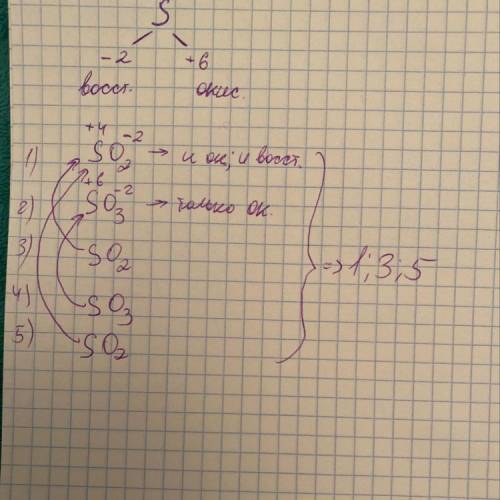 S
-2 +6
восст. окис.
1) +4 SO2 -2 → и ок; и восст.
2) +6 SO3 -2 → только ок.
3) SO2
4) SO3
5) SO2
⇒ 1; 3; 5